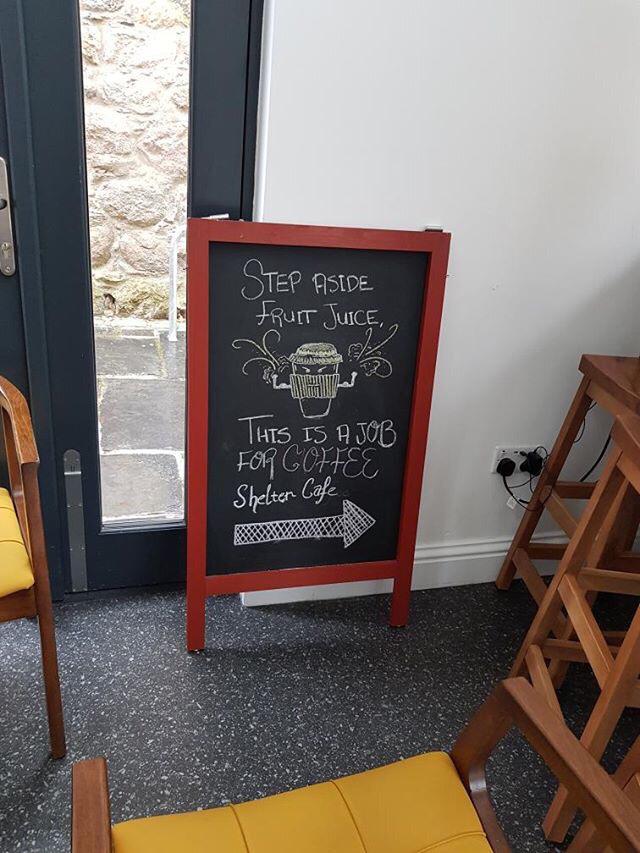 STEP ASIDE
FRUIT JUICE,
THIS IS A JOB
FOR COFFEE
Shelter Cafe